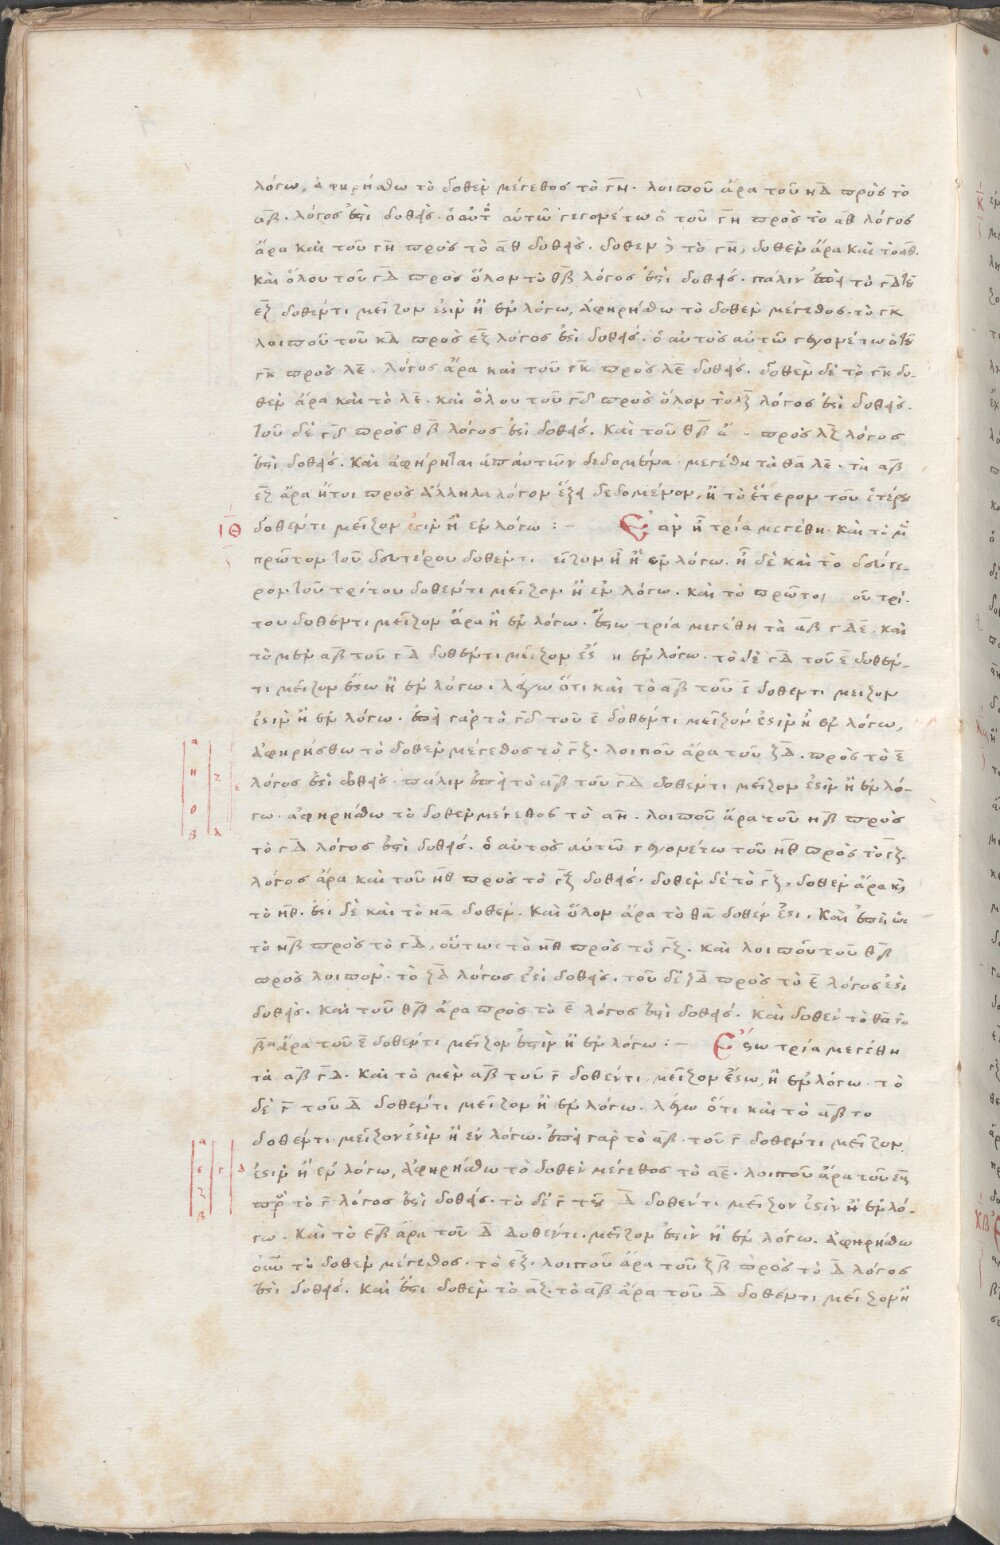 λόγω, ἀφηρήσθω τὸ δοθὲν μέγεθος τὸ γη. λοιποῦ ἄρα τοῦ ηδ πρὸς τὸ
αβ. λόγος ἐστὶ δοθείς. ὁ αὐτὸς αὐτῶ γεγονέτω ὁ τοῦ γη πρὸς τὸ αθ λόγος
ἄρα καὶ τοῦ γη πρὸς τὸ αθ δοθείς. δοθὲν δὲ τὸ γη, δοθὲν ἄρα καὶ τὸ αθ.
καὶ ὅλου τοῦ γδ πρὸς ὅλον τὸ θβ λόγος ἐστὶ δοθείς. πάλιν ἐπεὶ τὸ γδ τοῦ
εζ δοθέντι μεῖζον ἐστὶν ἢ ἐν λόγω, ἀφηρήσθω τὸ δοθὲν μέγεθος. τὸ γκ
λοιποῦ τοῦ κδ πρὸς εζ λόγος ἐστὶ δοθείς. ὁ αὐτὸς αὐτῶ γεγονέτω ὁ τοῦ
γκ πρὸς λε. λόγος ἄρα καὶ τοῦ γκ πρὸς λε δοθείς. δοθὲν δὲ τὸ γκ δο-
θὲν ἄρα καὶ τὸ λε. καὶ ὅλου τοῦ γδ πρὸς ὅλον τὸ λζ λόγος ἐστὶ δοθείς.
τοῦ δὲ γδ πρὸς θβ λόγος ἐστὶ δοθείς. καὶ τοῦ θβ ἄ πρὸς λζ λόγος
ἐστὶ δοθείς. καὶ ἀφήρηται ἀπ αὐτῶν δεδομένα μεγέθη τὰ θα λε. τὰ αβ
εζ ἄρα ἤτοι πρὸς ἄλληλα λόγον ἕξει δεδομένον, ἢ τὸ ἕτερον τοῦ ἑτέρου
ΙΘ δοθέντι μεῖζον ἐστὶν ἢ ἐν λόγω :– Ἐὰν ἦ τρία μεγέθη. καὶ τὸ μὲν
πρῶτον τοῦ δευτέρου δοθέντι εῖζον ἦ ἢ ἐν λόγω. ἦ δὲ καὶ τὸ δεύτε-
ρον τοῦ τρίτου δοθέντι μεῖζον ἢ ἐν λόγω. καὶ τὸ πρῶτο οῦ τρί-
του δοθέντι μεῖζον ἄρα ἢ ἐν λόγω. ἔστω τρία μεγέθη τὰ αβ γδ ε. καὶ
τὸ μὲν αβ τοῦ γδ δοθέντι μεῖζον ἔς η ἐν λόγω. τὸ δὲ γδ τοῦ ε δοθέν-
τι μεῖζον ἔστω ἢ ἐν λόγω. λέγω ὅτι καὶ τὸ αβ τοῦ ε δοθέντι μεῖζον
ἐστὶν ἢ ἐν λόγω. ἐπεὶ γὰρ τὸ γδ τοῦ ε δοθέντι μεῖζόν ἐστὶν ἢ ἐν λόγω,
ἀφηρήσθω τὸ δοθὲν μέγεθος τὸ γζ. λοιποῦ ἄρα τοῦ ζδ. πρὸς τὸ ε
λόγος ἐστὶ δοθείς. πάλιν ἐπεὶ τὸ αβ τοῦ γδ δοθέντι μεῖζον ἐστὶν ἢ ἐν λό-
γω. ἀφηρήσθω τὸ δοθὲν μέγεθος τὸ αη. λοιποῦ ἄρα τοῦ ηβ πρὸς
τὸ γδ λόγος ἐστὶ δοθείς. ὁ αὐτὸς αὐτῶ γεγονέτω τοῦ ηθ πρὸς τὸ γζ.
λόγος ἄρα καὶ τοῦ ηθ πρὸς τὸ γζ δοθείς. δοθὲν δὲ τὸ γζ, δοθὲν ἄρα κὶ
τὸ ηθ. ἔστι δὲ καὶ τὸ ηα δοθέν. καὶ ὅλον ἄρα τὸ θα δοθέν ἐστι. καὶ ἐπεὶ ὡς
τὸ ηβ πρὸς τὸ γδ, οὕτως τὸ ηθ πρὸς τὸ γζ. καὶ λοιποῦ τοῦ θβ
πρὸς λοιπὸν. τὸ ζδ λόγος ἐστὶ δοθείς. τοῦ δὲ ζδ πρὸς τὸ ε λόγος ἐστὶ
δοθείς. καὶ τοῦ θβ ἄρα πρὸς τὸ ε λόγος ἐστὶ δοθείς. καὶ δοθὲν τὸ θα τὸ
βα ἄρα τοῦ ε δοθέντι μεῖζον ἐστὶν ἢ ἐν λόγω :– Ἔστω τρία μεγέθη
τὰ αβ γ δ. καὶ τὸ μὲν αβ τοῦ γ δοθέντι μεῖζον ἔστω, ἢ ἐν λόγω. τὸ
δὲ γ τοῦ δ δοθέντι μεῖζον ἢ ἐν λόγω. λέγω ὅτι καὶ τὸ αβ το
δοθέντι μεῖζον ἐστὶν ἢ ἐν λόγω. ἐπεὶ γὰρ τὸ αβ. τοῦ γ δοθέντι μεῖζον
ἐστὶν ἢ ἐν λόγω, ἀφηρήσθω τὸ δοθὲν μέγεθος τὸ αε. λοιποῦ ἄρα τοῦ εβ
πρὸς τὸ γ λόγος ἐστὶ δοθείς. τὸ δὲ γ τοῦ δ δοθέντι μεῖζον ἐστὶν ἢ ἐν λό-
γω. καὶ τὸ εβ ἄρα τοῦ δ δοθέντι. μεῖζον ἐστὶν ἢ ἐν λόγω. ἀφηρήσθω
οὖν τὸ δοθὲν μέγεθος. τὸ εζ. λοιποῦ ἄρα τοῦ ζβ πρὸς τὸ δ λόγος
ἐστὶ δοθείς. καὶ ἔστι δοθὲν τὸ αζ. τὸ αβ ἄρα τοῦ δ δοθέντι μεῖζον ἢ